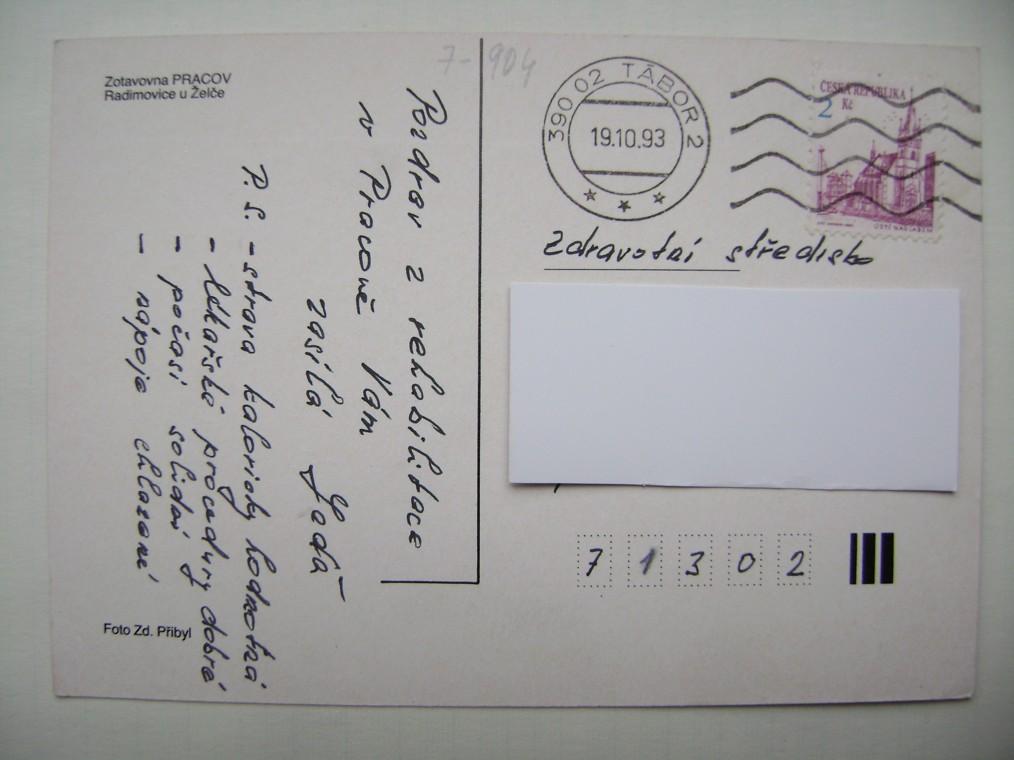 Zotavovna PRACOV
Radimovice u Želče
7-904
Pozdrav z rehabilitace
v Pracově Vám
zasílá Laďa
P.S. - strava kaloricky hodnotná
- lékařské procedury dobré
- počasí solidní
- nápoje chlazené
Foto Zd. Přibyl
390 02 TÁBOR 2
19.10.93
ČESKÁ REPUBLIKA
2 Kč
ÚSTÍ NAD LABEM
Zdravotní středisko
7 1 3 0 2